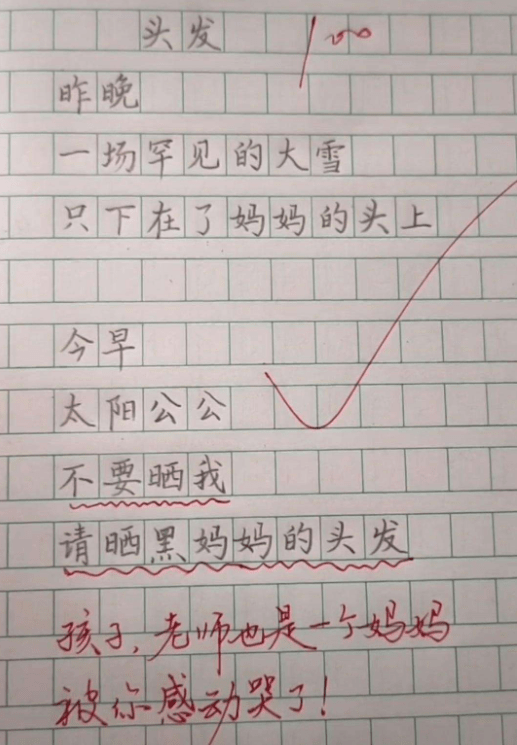 头发 100
昨晚
一场罕见的大雪
只下在了妈妈的头上
今早
太阳公公
不要晒我
请晒黑妈妈的头发
孩子,老师也是一个妈妈
被你感动哭了!